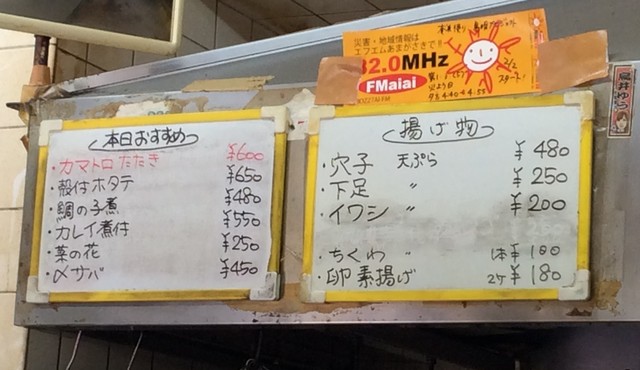 本日おすすめ
・カマトロたたき ¥600
・殻付ホタテ ¥650
・鯛の子煮 ¥480
・カレイ煮付 ¥550
・菜の花 ¥250
・〆サバ ¥450
災害・地域情報は
エフエムあまがさきで!!
82.0MHz
FMaiai
スタート!
揚げ物
・穴子 天ぷら ¥480
・下足 〃 ¥250
・イワシ 〃 ¥200
・ちくわ 〃 1本¥100
・卵素揚げ 2ケ¥180